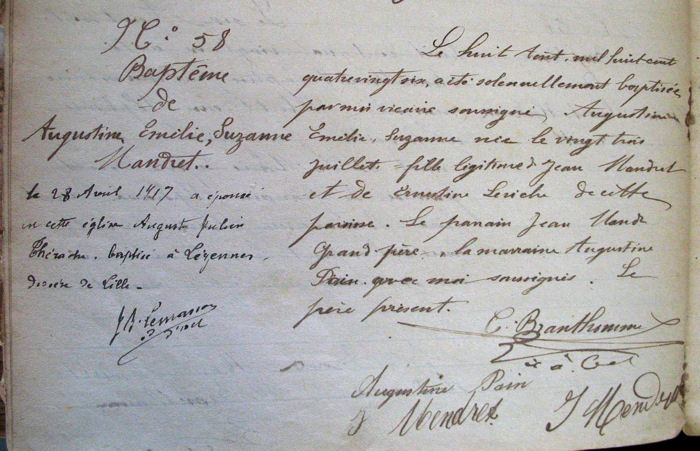 N.º 58
Baptême
de
Augustine, Emilie, Suzanne
Mandret.
le 28 Avril 1917 a épousé
en cette église August Julien
baptisé à Lezennes
diocèse de Lille.
Le huit Aout, mil huit cent
quatre vingt six, a été solennellement baptisée
par moi vicaire soussigné Augustine
Emilie, Suzanne née le vingt trois
juillet fille légitime d Jean Mandret
et de Ernestine Leriche de cette
paroisse. Le parrain Jean Mand
Grand père, la marraine Augustine
Pain, avec moi soussignés. Le
père présent.
C. Branthomme
Augustine Pain
J Mendret
J Mendret